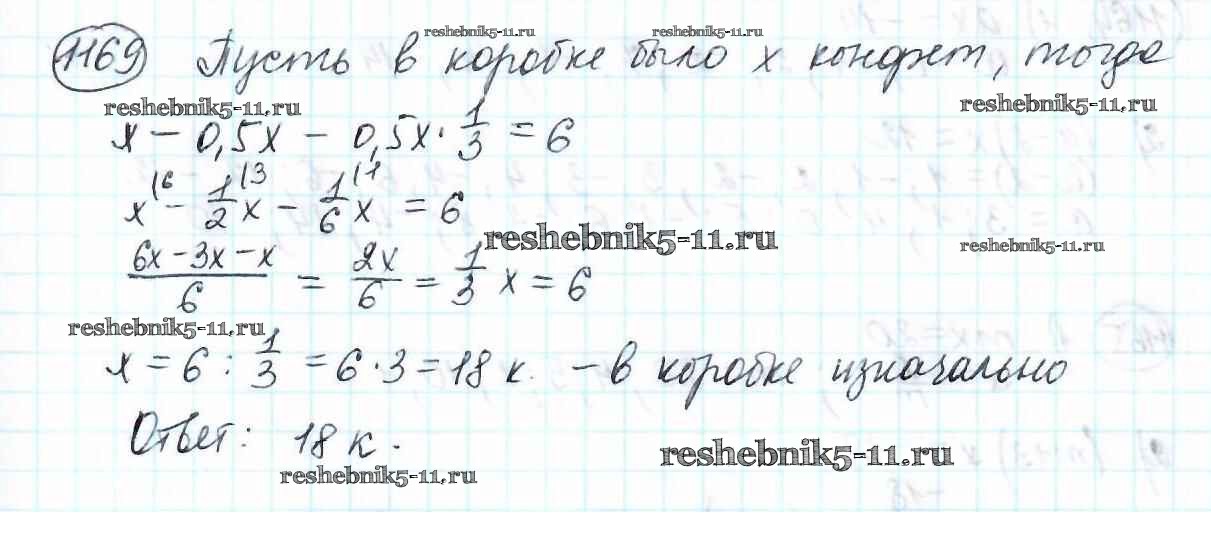 reshebnik5-11.ru reshebnik5-11.ru
1169 Пусть в коробке было x конфет, тогда
reshebnik5-11.ru reshebnik5-11.ru
x - 0,5x - 0,5x · 1/3 = 6
x^(6 - 1/2^(3 x - 1/6^(1 x = 6
reshebnik5-11.ru reshebnik5-11.ru
(6x - 3x - x)/6 = 2x/6 = 1/3 x = 6
reshebnik5-11.ru
x = 6 : 1/3 = 6 · 3 = 18 к. - в коробке изначально
Ответ: 18 к.
reshebnik5-11.ru
reshebnik5-11.ru